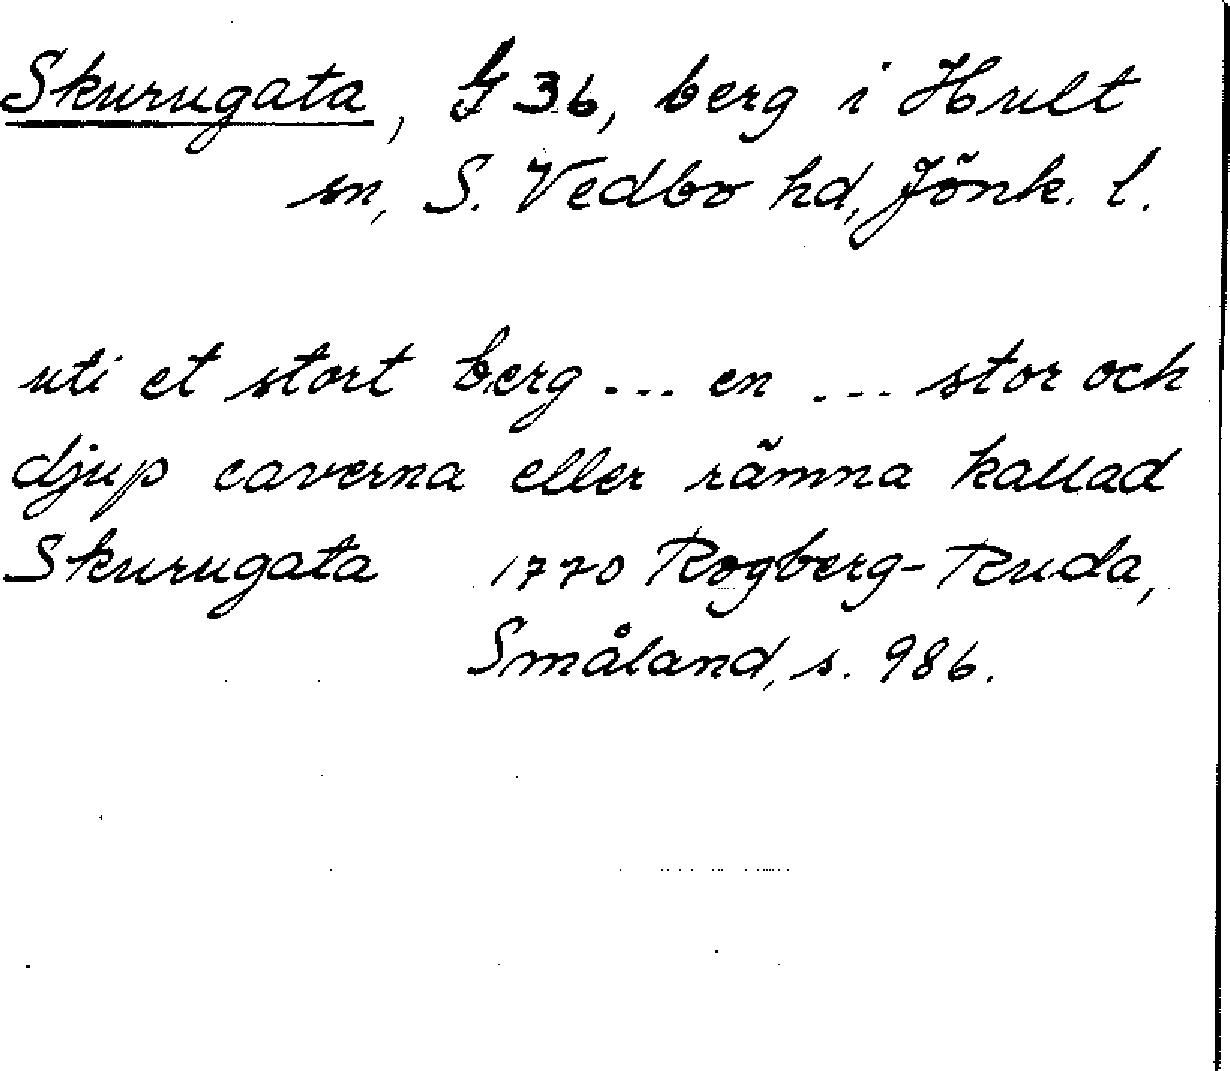 Skurugata, G 36, berg i Hult
sn, S. Vedbo hd, Jönk. l.
uti et stort berg ... en ... stor och
djup caverna eller rämna kallad
Skurugata 1770 Rogberg-Ruda,
Småland, s. 986.